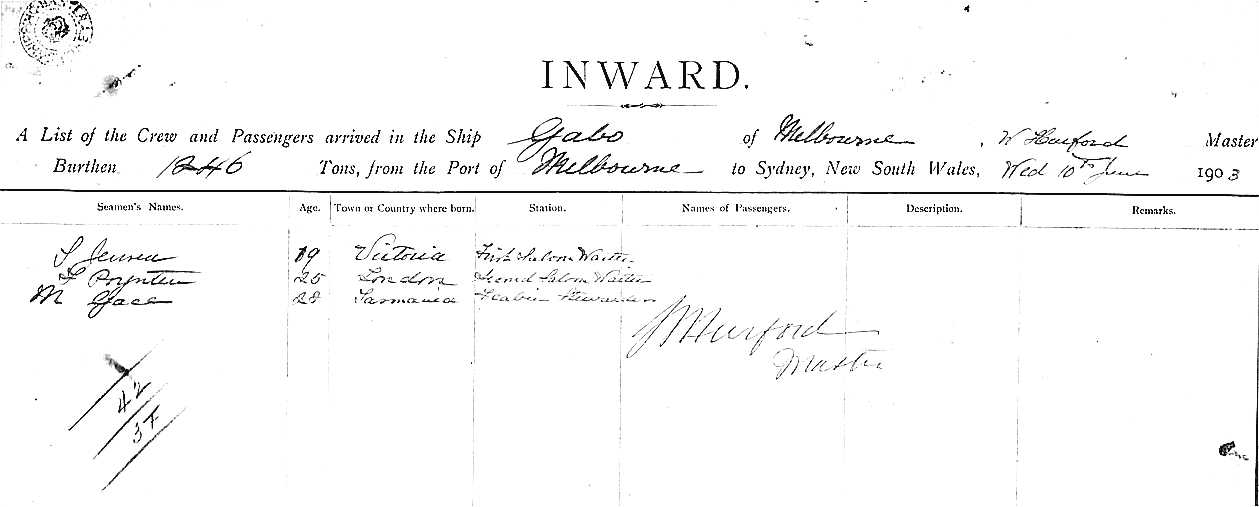 INWARD.
A List of the Crew and Passengers arrived in the Ship Gabo of Melbourne, W Hurford Master
Burthen 1246 Tons, from the Port of Melbourne to Sydney, New South Wales, Wed 10th June 1903
Seamen's Names. Age. Town or Country where born. Station. Names of Passengers. Description. Remarks.
S Jensen 19 Victoria First Saloon Waiter
F Poynter 25 London Second Saloon Waiter
M 28 Tasmania Stewardess
Hurford
Master
42
37